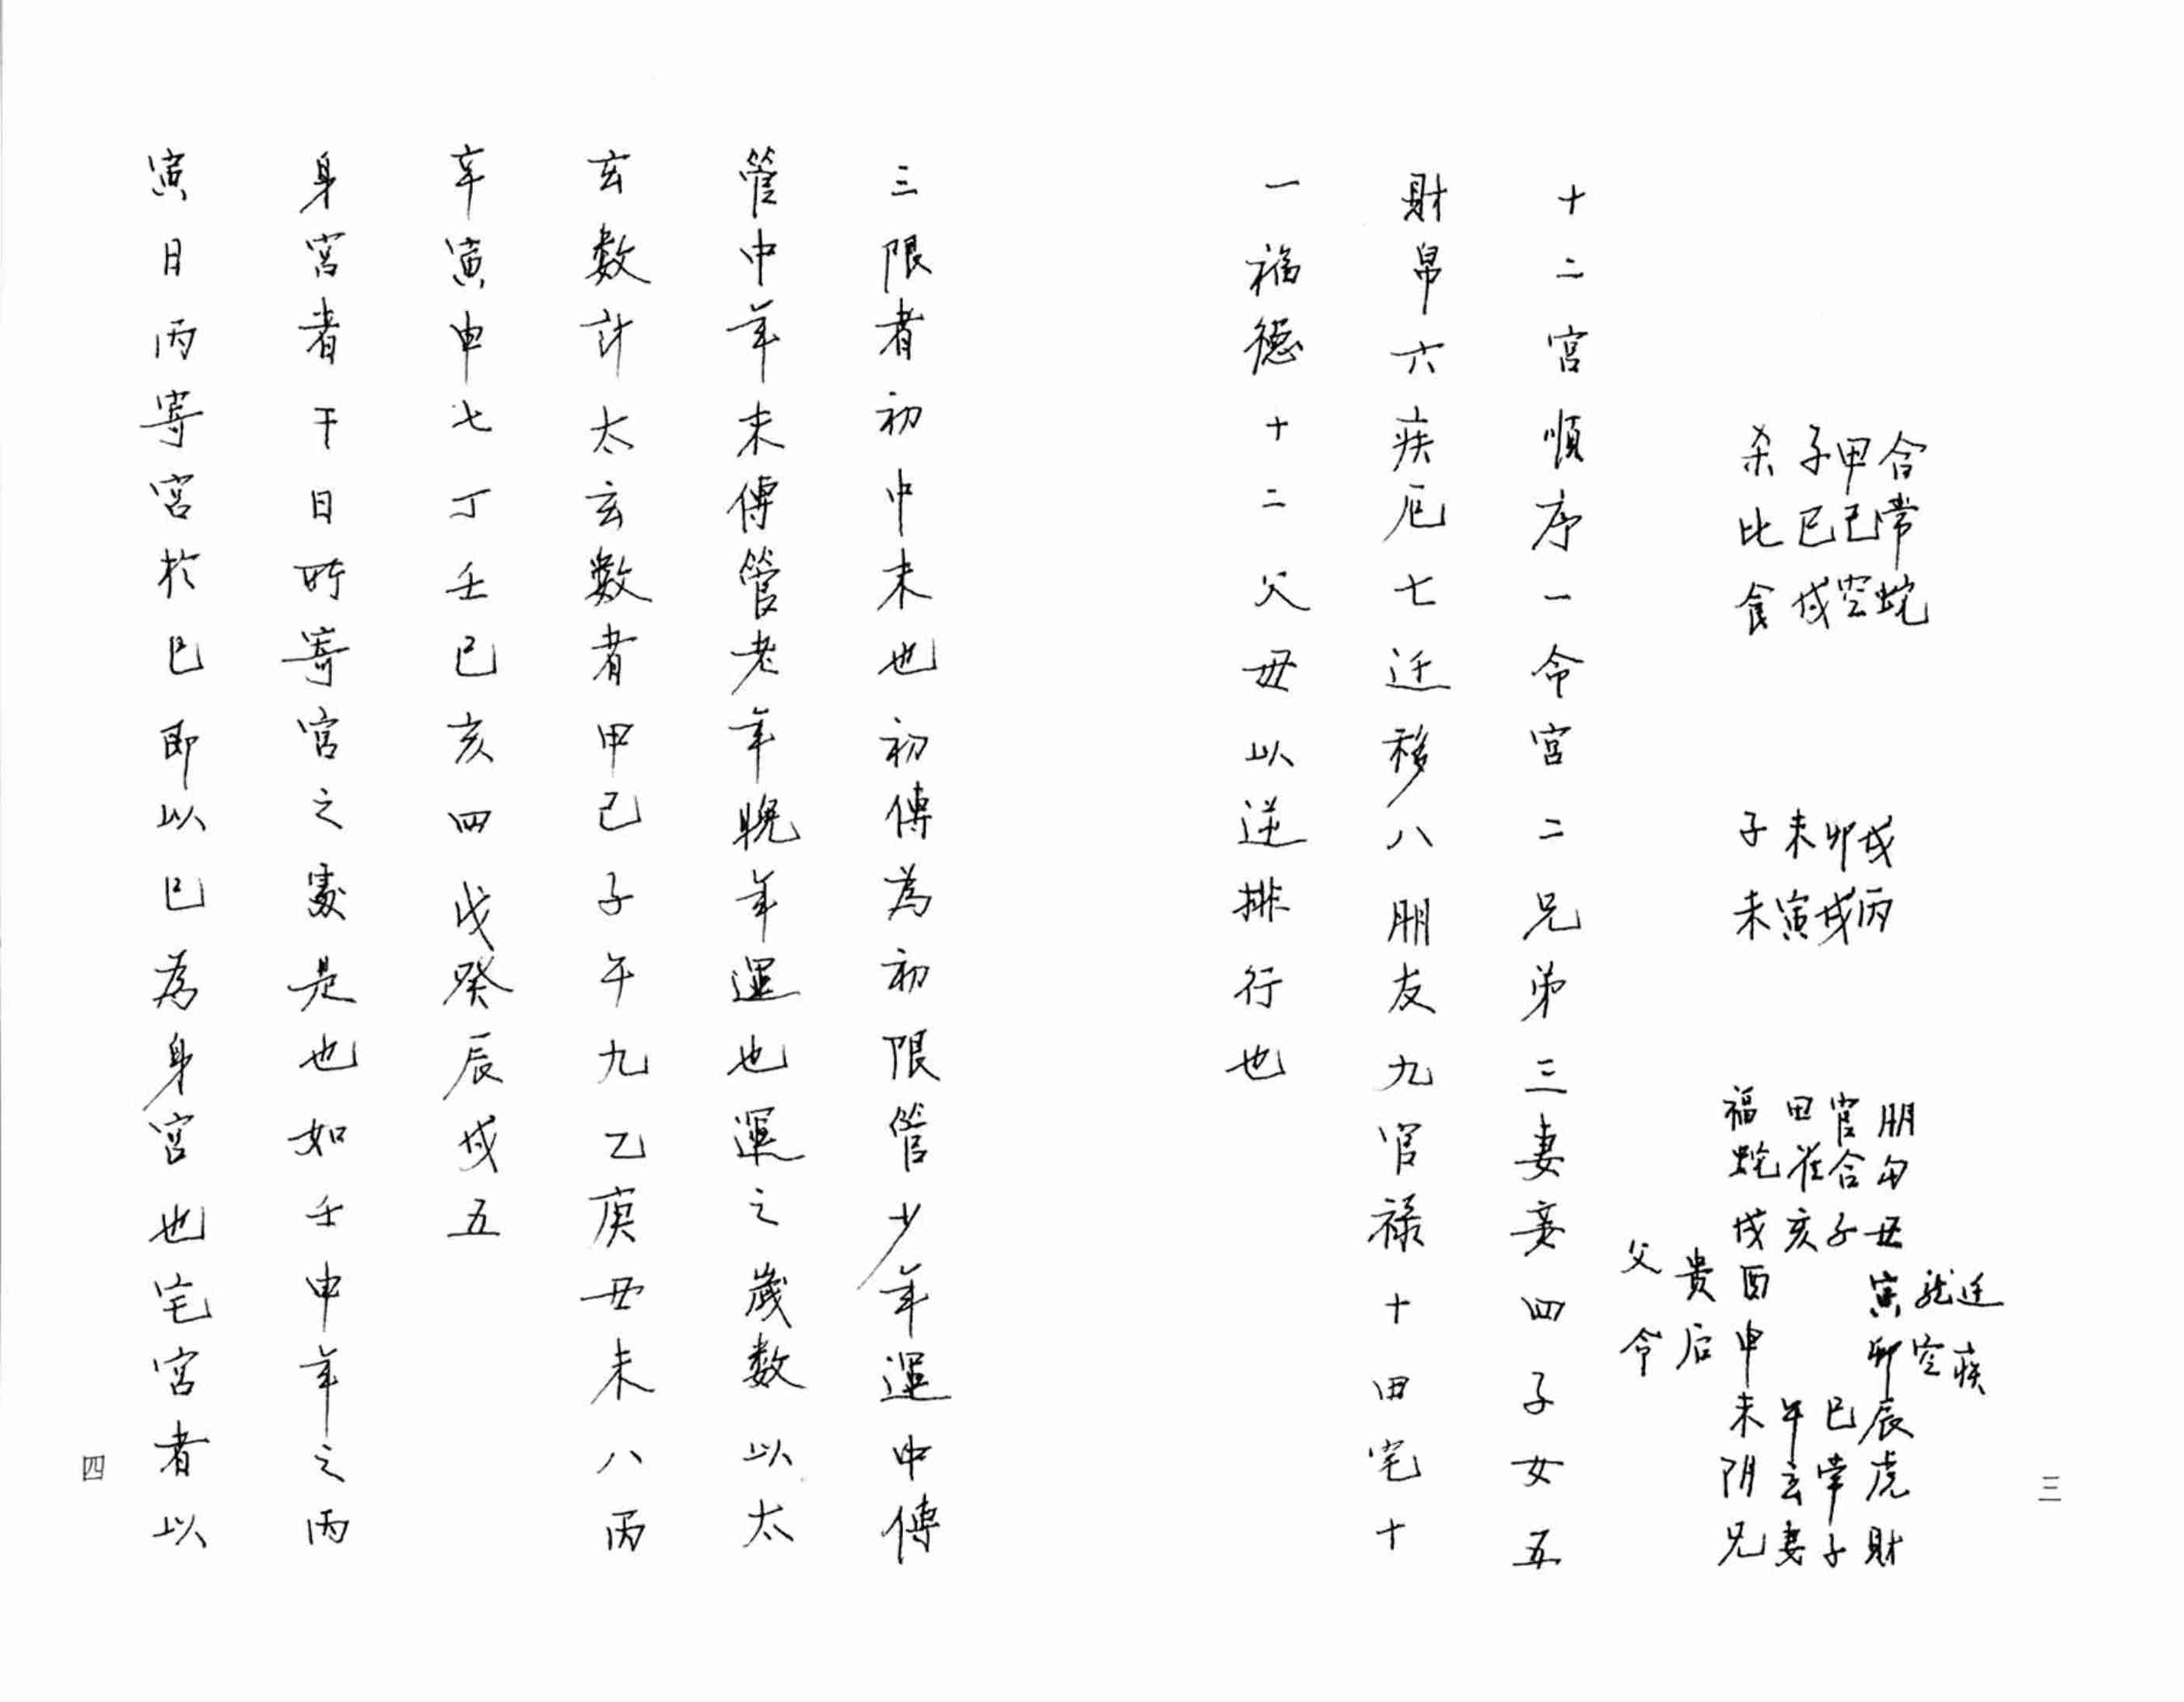 三
合常蛇
甲己空
子巳戌
杀比食
戌丙
卯戌
未寅
子未
朋勾丑
官合子
田雀亥
福蛇戌
迁疾
龙空
寅卯辰虎財
巳常子
午玄妻
酉申未阴兄
貴后
父命
十二宮順序一命宮二兄弟三妻妾四子女五
財帛六疾厄七迁移八朋友九官禄十田宅十
一福德十二父母以逆排行也
三限者初中末也初傳為初限管少年運中傳
管中年末傳管老年晚年運也運之歲数以太
玄数計太玄数者甲己子午九乙庚丑未八丙
辛寅申七丁壬巳亥四戊癸辰戌五
身宮者干日所寄宮之處是也如壬申年之丙
寅日丙寄宮於巳即以巳為身宮也宅宮者以
四